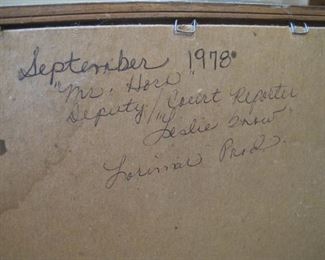 September 1978
"Mr. Horn"
Deputy/Court Reporter
"Leslie Snow"
Lorimar Prod.